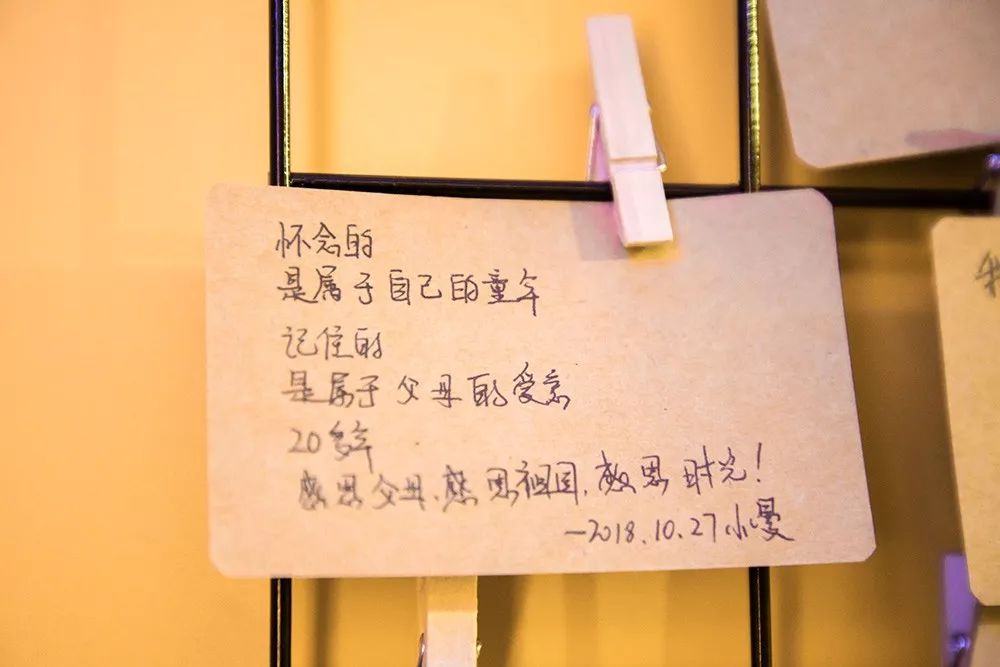 怀念的
是属于自己的童年
记住的
是属于父母的爱意
20多年
感恩父母、感恩祖国、感恩时光!
—2018.10.27 小曼